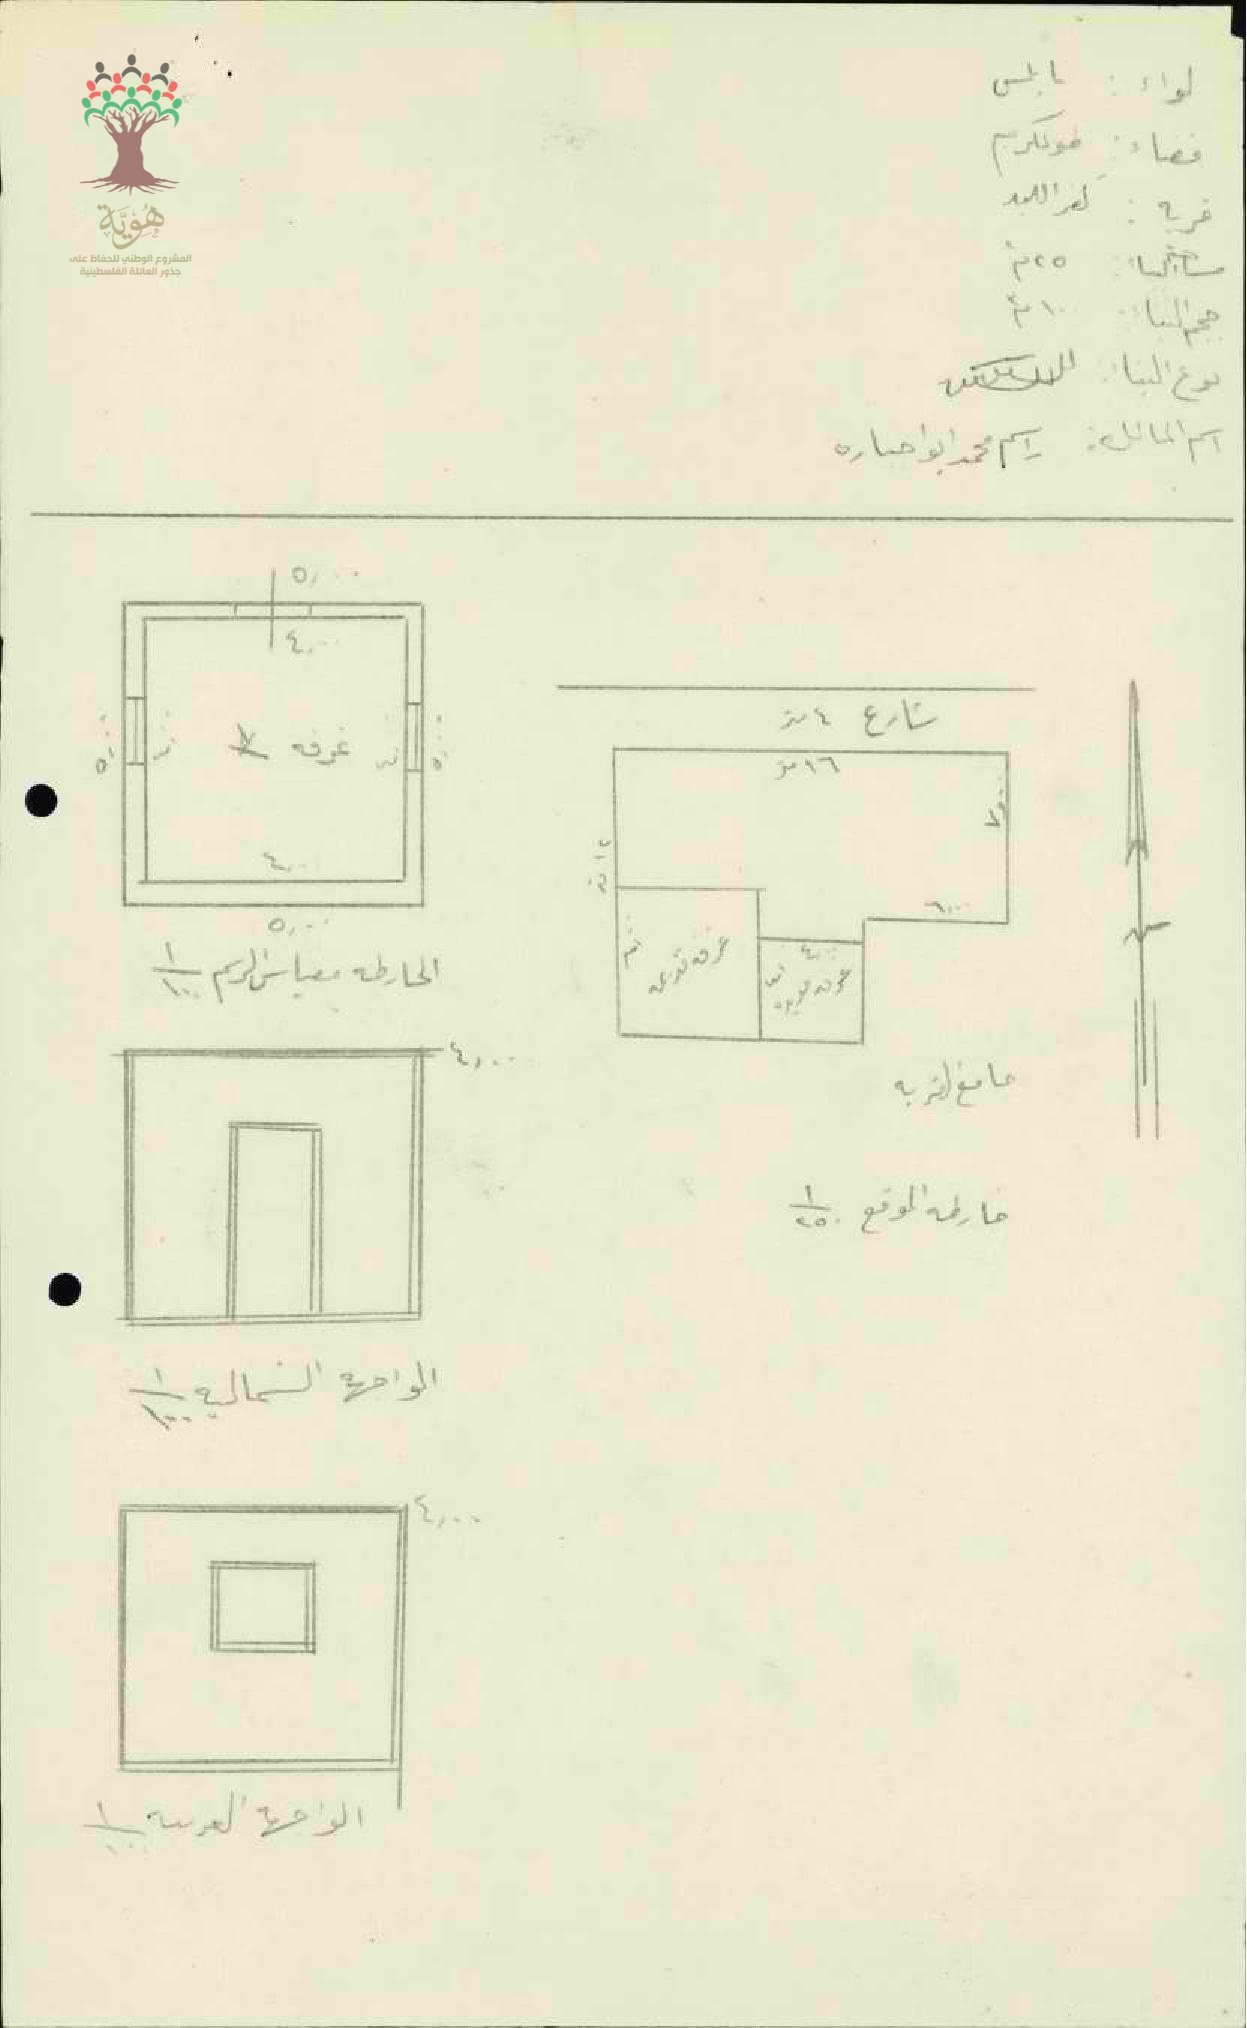 هُوِيَّة
المشروع الوطني للحفاظ على
جذور العائلة الفلسطينية
لواء : نابلس
قضاء : طولكرم
قريه : كفر اللبد
مساحة البناء : ٢٥ م٢
حجم البناء : ١٠٠ م٣
نوع البناء : للسكن
اسم المالك : راسم محمد ابو احباره
٥,٠٠
٤,٠٠
غرفه
٥,٠٠
٥,٠٠
٤,٠٠
٥,٠٠
الخارطه مقياس الرسم ١/١٠٠
شارع ٤ متر
١٦ متر
١٢ متر
٦,٠٠
غرفة قديمه
٤,٠٠
غرفه جديده
جامع القريه
خارطه الموقع ١/٢٥٠
٤,٠٠
الواجهة الشمالية ١/١٠٠
٤,٠٠
الواجهة الغربيه ١/١٠٠